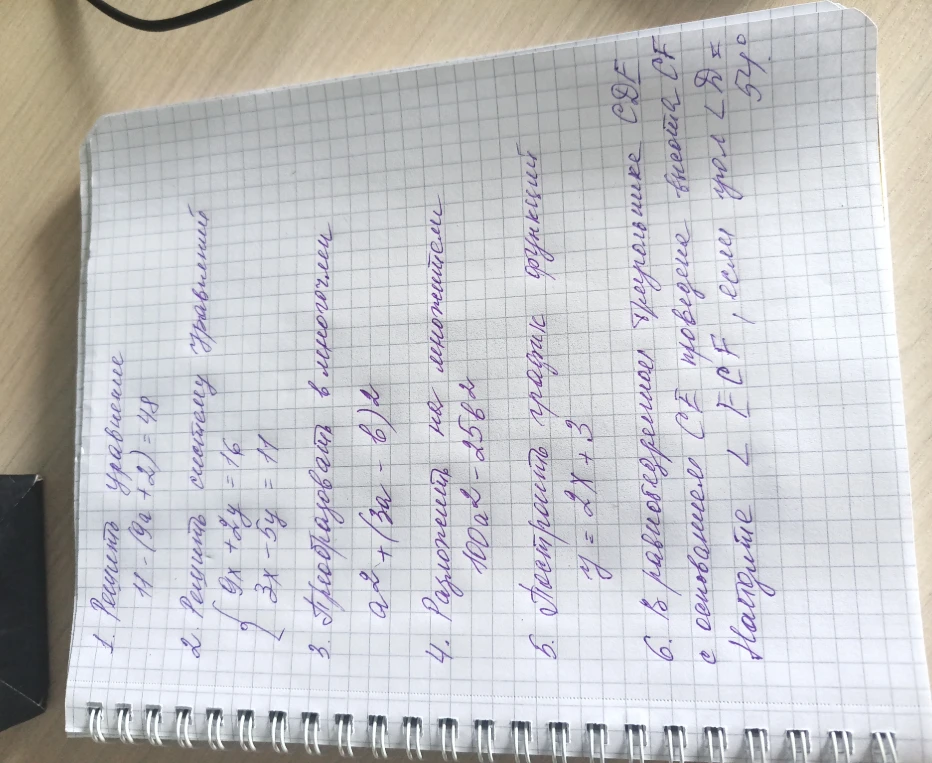 1. Решить уравнение
11 - (9a + 2) = 48
2 Решить систему уравнений
{ 9x + 2y = 16
3x - 5y = 11
3. Преобразовать в многочлен
a2 + (3a - b)2
4. Разложить на множители
100a2 - 25b2
5. Построить график функций
y = 2x + 3
6. В равнобедренном треугольнике CDE
с основанием CE проведена высота CF
Найдите ∠ ECF, если угол ∠ D =
54°